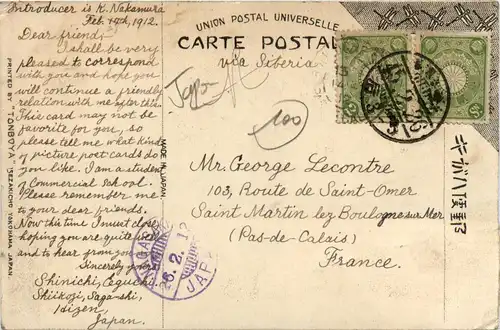 Introducer is K. Nakamura
Feb. 14th, 1912.
Dear friend;
I shall be very
pleased to correspond
with you and hope you
will continue a friendly
relation with me after this.
This card may not
favorite for you, so
please tell me what kind
of picture post cards do
you like. I am a student
of Commercial School.
Please remember me
to your dear friends.
Now this time I must close
hoping you are quite
and to hear from you
Sincerely yours
Shinichi, Eguchi,
Shiikoji, Saga-shi,
Hizen,
Japan.
PRINTED BY TONBOYA ISEZAKICHO YOKOHAMA, JAPAN.
MADE IN JAPAN
UNION POSTAL UNIVERSELLE
CARTE POSTALE
via Siberia
Japon
100
Mr. George Lecontre
103, Route de Saint-Omer
Saint Martin lez Boulogne sur Mer
(Pas-de-Calais)
France.
NAGASAKI
26.2.12
JAPAN